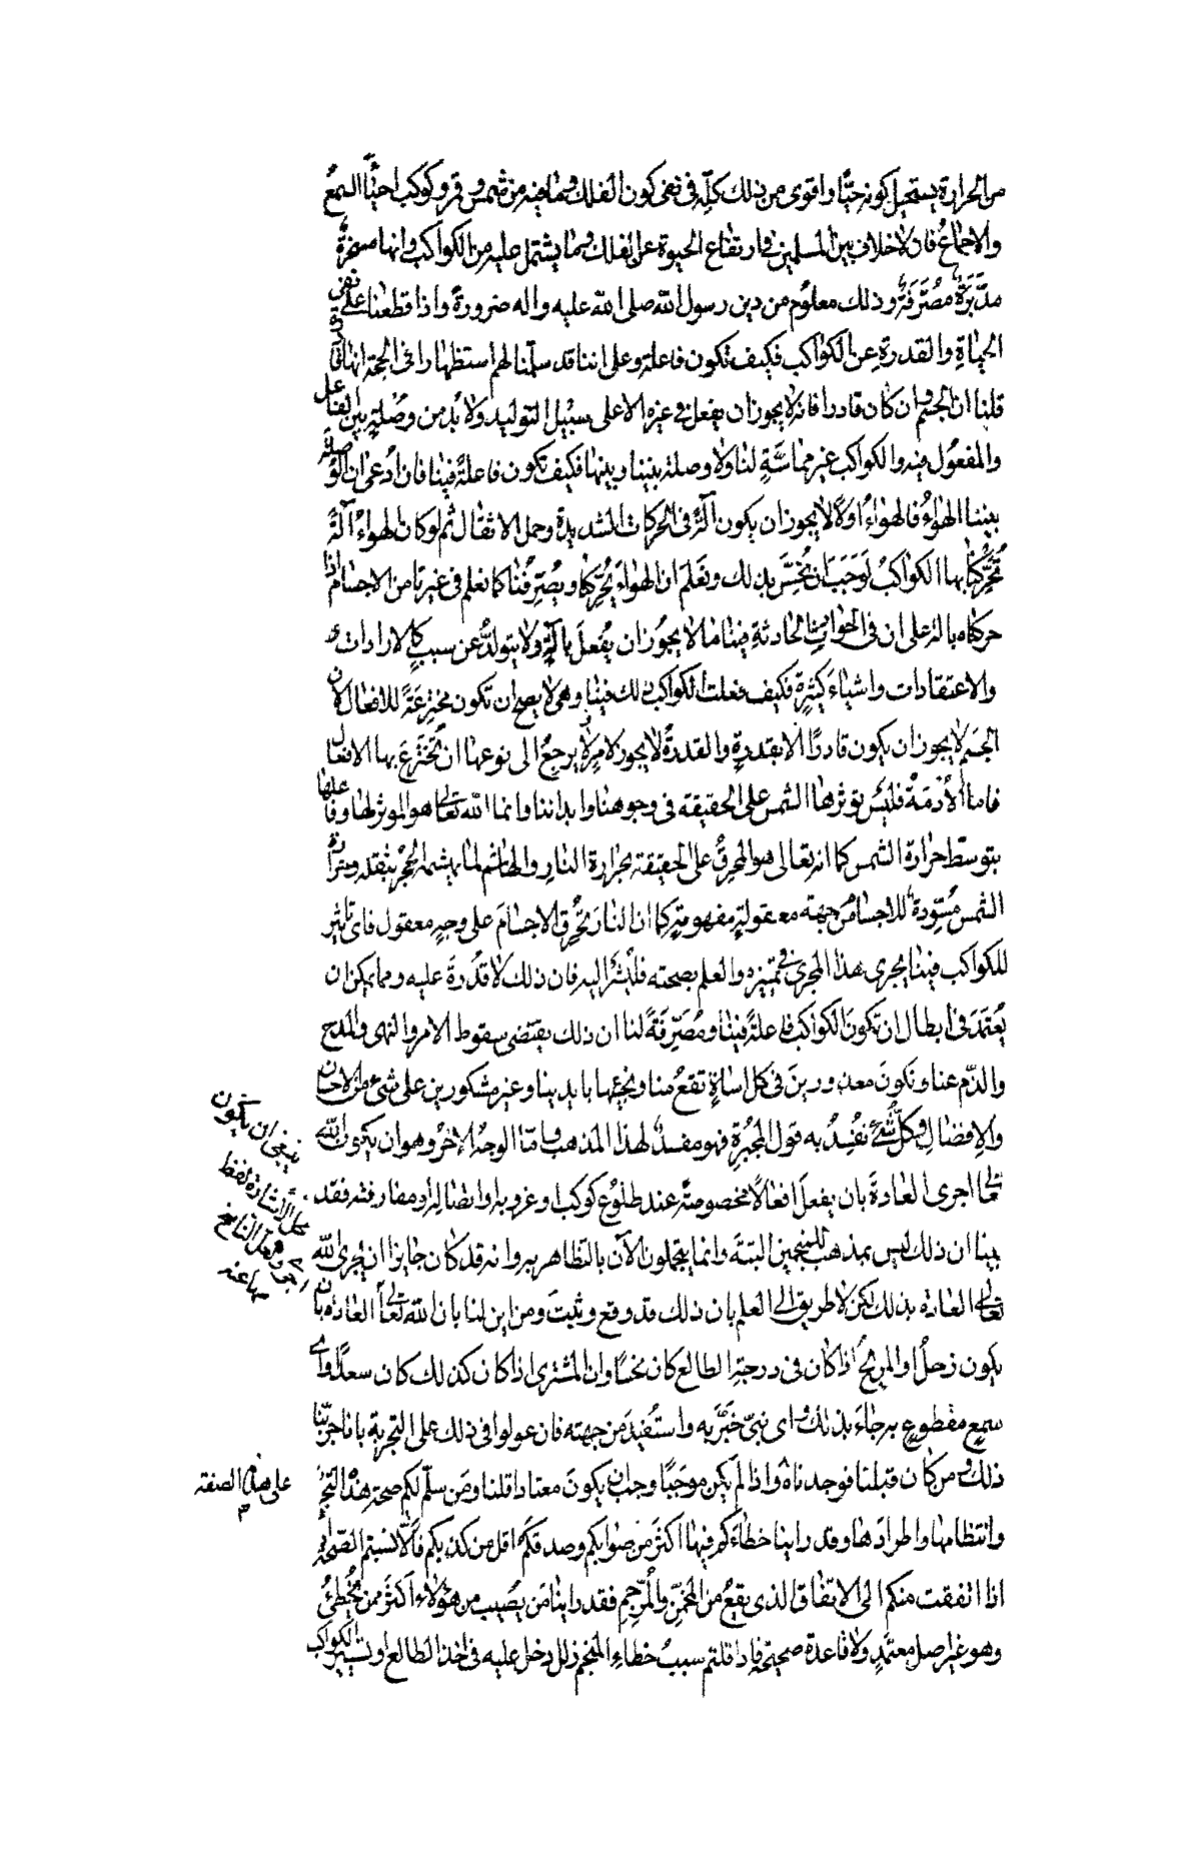 من الحرارة يستحيل كونه حيّا واقوى من ذلك كلّه فى نفى كون الفلك وما فيه من شمس و قمر و كوكب احيآءً السمعُ
والاجماعُ فانه لاخلاف بين المسلمين فى ارتفاع الحيوة عن الفلك وما يشتمل عليه من الكواكب وانها مسخرةٌ
مدَبَّرَةٌ مصَرَّفَةٌ وذلك معلوم من دين رسول الله صلى الله عليه واله ضرورةً واذا قطعنا على نفى
الحياةِ والقدرة عن الكواكب فكيف تكون فاعلة وعلى اننا قد سلّمنا لهم استظهارا فى الحجة انها قادرة
قلنا ان الجسم وان كان قادرا فانه لايجوز ان يفعل فى غيره الا على سبيل التوليد ولا بُدّ من وصْلةٍ بين الفاعل
والمفعول فيه والكواكب غير مماسَّةٍ لنا ولا وصلة بيننا وبينها فكيف تكون فاعلةً فينا فان ادُعى ان الوصلة
بيننا الهواءُ فالهواءُ اولاً لايجوز ان يكون آلةً فى الحركات الشديدة وحمل الاثقال ثم لو كان الهواءُ آلةً
تُحَرِّكُنا بها الكواكبُ لَوَجَبَ ان نُحِسَّ بذلك ونعلمَ ان الهواءَ يُحَرِّكنا ويُصَرِّفُنا كما نعلم فى غيرنا من الاجسام اذا
حركناه بالة على ان فى الحوادث الحادثةِ فينا ما لا يجوُز ان يُفعلَ بآلةٍ ولا يتولّدُ عن سببٍ كالارادات و
والاعتقادات واشياءَ كثيرةٍ فكيف فعلت الكواكب ذلك فينا وهى لا يصح ان تكون مخترِعَةً للافعال لان
الجسم لايجوز ان يكون قادرًا الا بقدرةٍ والقدرةُ لايجوز لامرٍ يرجعُ الى نوعها ان تُخترَعَ بها الافعال
فاما الأُدْمَةُ فليسَ تؤثرها الشمس على الحقيقة فى وجوهنا وابداننا وانما الله تعالى هو المؤثر لها وفاعلها
بتوسّط حرارة الشمس كما انه تعالى هو المحرقُ على الحقيقة بحرارة النارِ والهاشم لما يهشمه الحجرُ بثقله وحرارة
الشمس مُسَوِّدةٌ للاجسام من جهةٍ معقولةٍ مفهومةٍ كما ان النارَ تُحْرِق الاجسامَ على وجهٍ معقول فاى تاثير
للكواكب فينا يجرى هذا المجرى فى تمييزه والعلم بصحته فَلْيُشَرْ اليه فان ذلك لا قُدرةَ عليه ومما يمكن ان
يُعتَمَدَ فى ابطال ان تكونَ الكواكب فاعلةً فينا ومُصَرِّفَةً لنا ان ذلك يقتضى سقوط الامر والنهى والمدح
والذّم عنا ونكونَ معذورينَ فى كل اساءةٍ تقعُ منا ونجنيها بايدينا وغير مشكورين على شىءٍ من الاحسان
والافضالِ وكلُّ شىءٍ نُفْسِدُ به قول المُجْبِرَةِ فهو مفسدٌ لهذا المذهب وامّا الوجهُ الاخرُ وهو ان يكون الله
تعالى اجرى العادةَ بان يفعلَ افعالًا مخصوصةً عند طلوعُ كوكب او غروبه او اتصاله او مفارقته فقد
بينا ان ذلك ليس بمذهب للمنجمين البتةَ وانما يتجملون الآن بالتظاهر به وانه قد كان جايزا ان يُجرى الله
تعالى العادة بذلك لكن لا طريق الى العلم بان ذلك قد وقع وثبتَ ومن اين لنا بان الله تعالى اجرى العادة بان
يكون زحلُ او المريخُ اذا كان فى درجة الطالع كان نحسًا وان المشترى اذا كان كذلك كان سعدًا واى
سمعٍ مقطوعٍ به جاءَ بذلك واى نبىّ خَبَّرَ به واستُفيدَ من جهته فان عولوا فى ذلك على التجربة بانا جربّنا
ذلك ومن كان قبلنا فوجدناه واذا لم يكن موجَبًا وجب ان يكونَ معتادا قلنا ومَن سلّم لكم صحة هذه التجربة
وانتظامها واطرادَها وقد راينا خطاءَكم فيها اكثرَ من صوابكم وصدقَكم اقل من كذبكم فالّا نسبتم الصحة
اذا اتفقت منكم الى الاتفاق الذى يقعُ من المخمّن والمُرَجِّم فقد راينا مَن يُصيب من هؤلاء اكثرَ ممن يُخطئُ
وهو غير اصلٍ معتمَدٍ ولا قاعدة صحيحة فاذا قلتم سببُ خطاءِ المنجم زلل دخل عليه فى اخذ الطالع او تسيير الكواكب
ينبغى ان يكون
محل الاشارة لفظ
اجرى ولعل الناسخ
سها عنه
على هذه الصفة
م